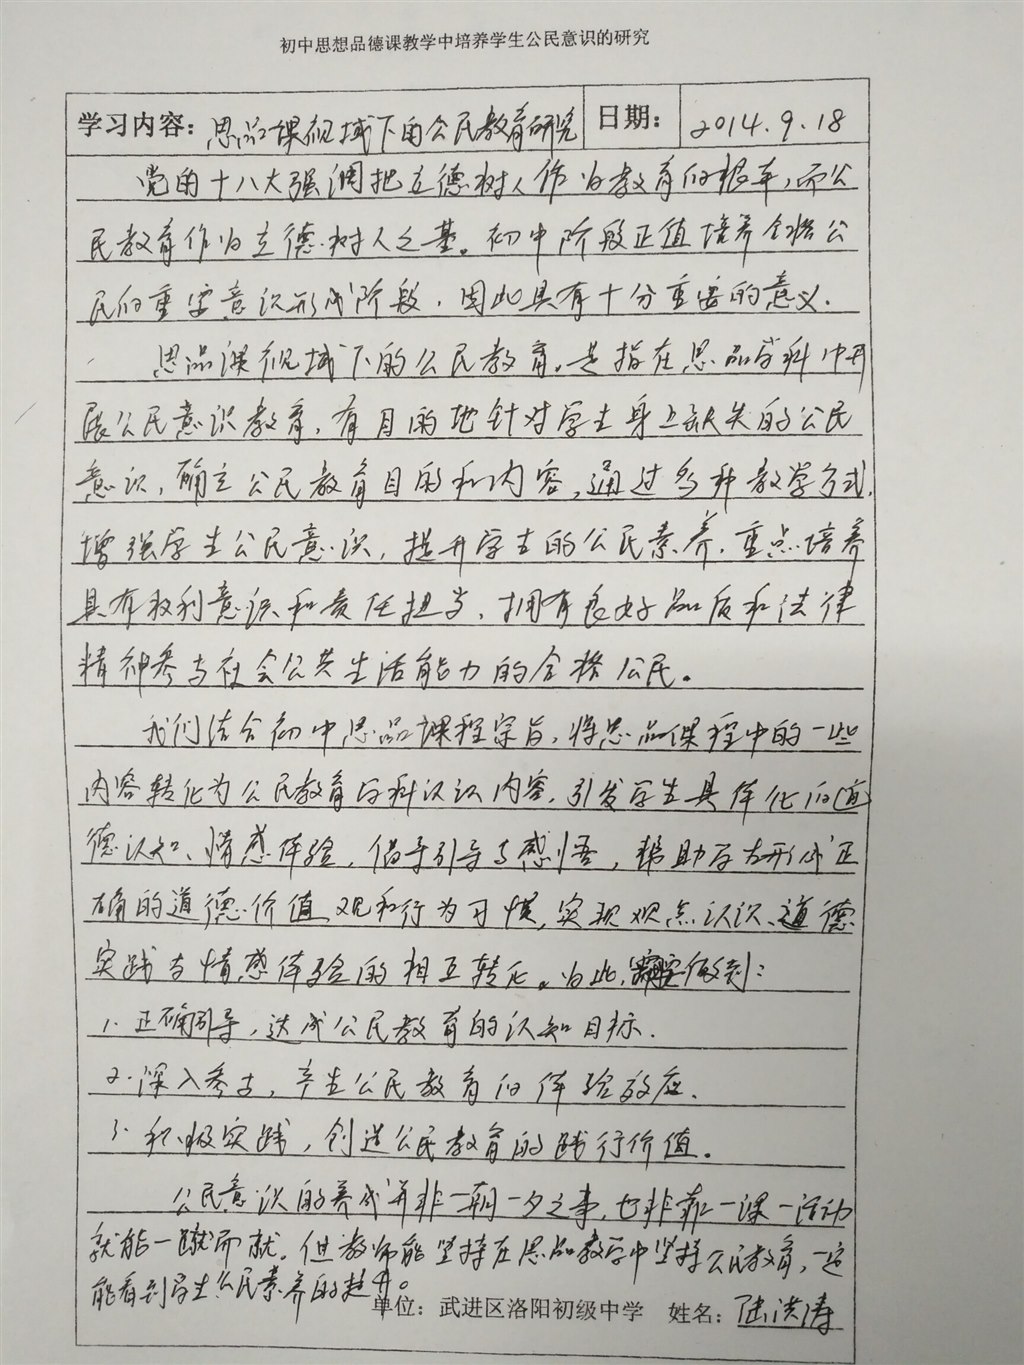 初中思想品德课教学中培养学生公民意识的研究
学习内容：思品课视域下的公民教育研究 日期：2014.9.18
党的十八大强调把立德树人作为教育的根本，而公
民教育作为立德树人之基。初中阶段正值培养合格公
民的重要意识形成阶段，因此具有十分重要的意义．
思品课视域下的公民教育，是指在思品学科中开
展公民意识教育，有目的地针对学生身上缺失的公民
意识，确立公民教育目的和内容，通过多种教学方式，
增强学生公民意识，提升学生的公民素养，重点培养
具有权利意识和责任担当，拥有良好品质和法律
精神参与社会公共生活能力的合格公民。
我们结合初中思品课程宗旨，将思品课程中的一些
内容转化为公民教育学科认识内容，引发学生具体化的道
德认知、情感体验，倡导引导与感悟，帮助学生形成正
确的道德价值观和行为习惯，实现观点认识、道德
实践与情感体验的相互转化。为此，需要做到：
1. 正确引导，达成公民教育的认知目标．
2. 深入参与，产生公民教育的体验效应．
3. 积极实践，创造公民教育的践行价值。
公民意识的养成并非一朝一夕之事，也非靠一课一活动
就能一蹴而就．但教师能坚持在思品教学中坚持公民教育，一定
能看到学生公民素养的提升。
单位：武进区洛阳初级中学 姓名：陆洪涛